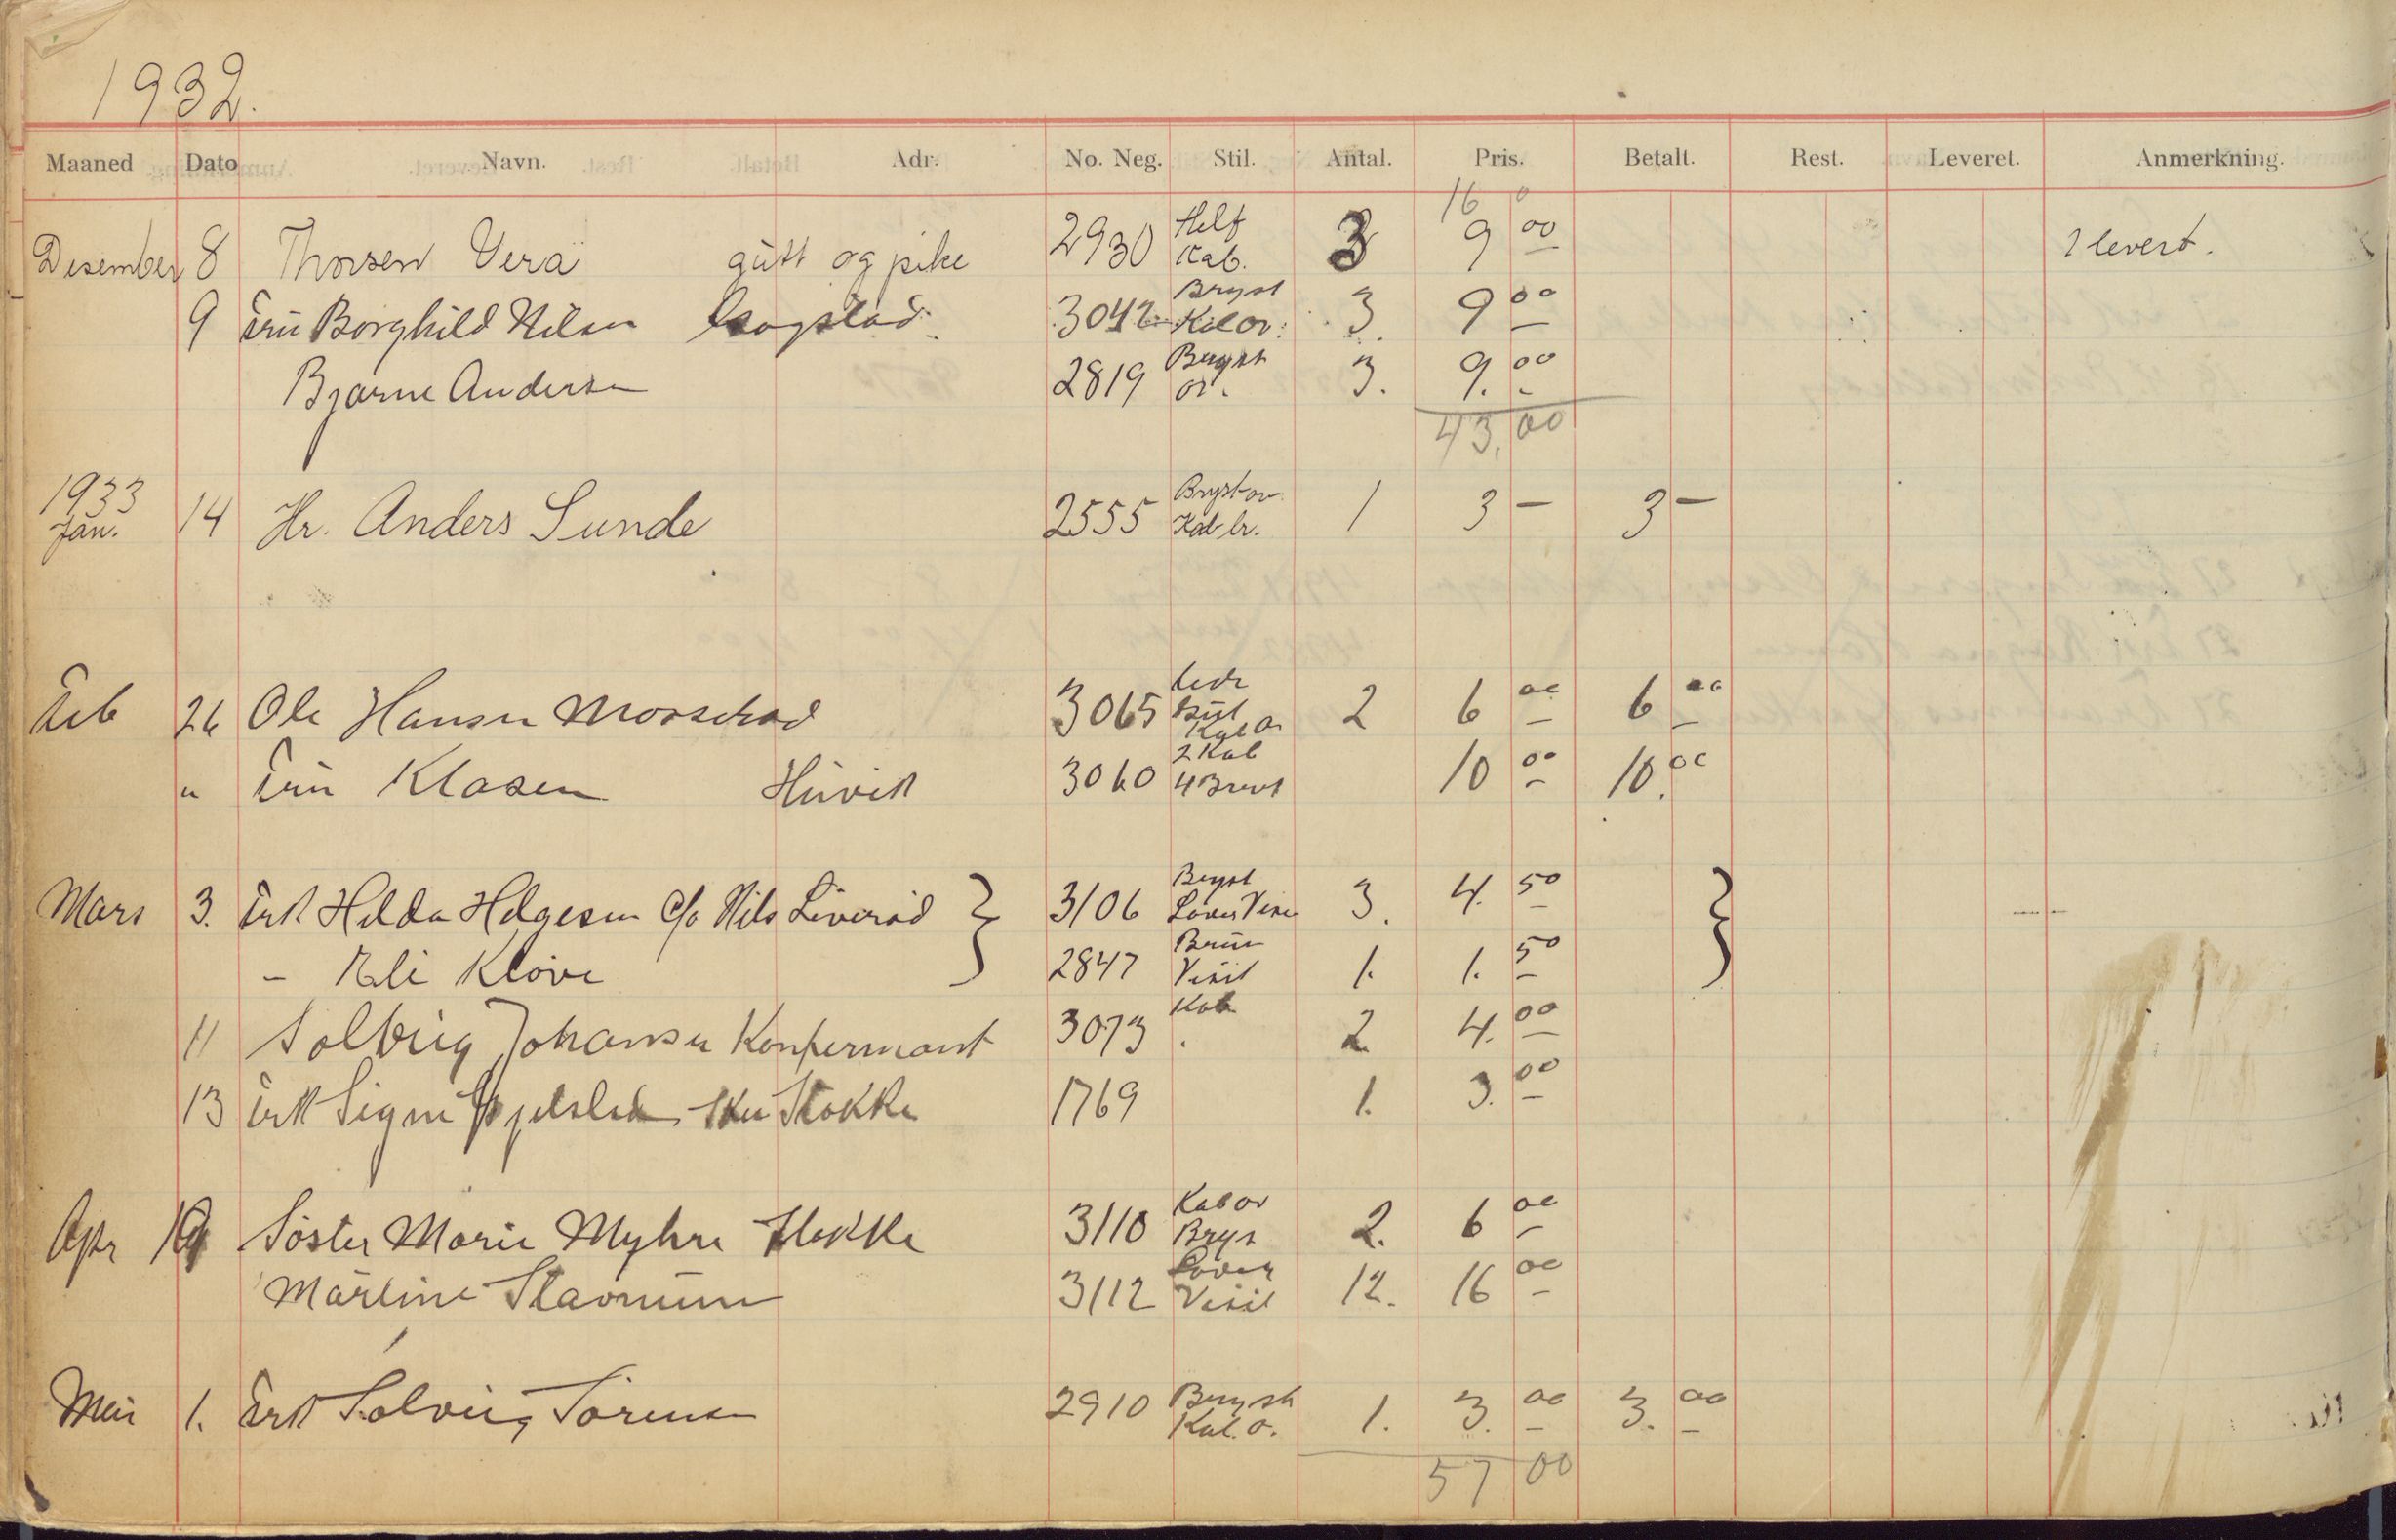 1932.
Maaned Dato Navn. Adr. No. Neg. Stil. Antal. Pris. Betalt. Rest. Leveret. Anmerkning.
16 0
Desember 8 Thorsen Vera gutt og pike 2930 Helf Kab. 3 9 00 1 levert.
9 Fru Borghild Nilsen 3042 Bryst Kab or: 3. 9 00
Bjarne Andersen 2819 Bryst or. 3. 9. 00
43,00
1933
Jan. 14 Hr. Anders Sunde 2555 Bryst or. Kab br. 1 3 – 3 –
Feb 26 Ole Hansen 3065 Kab or 2 6 00 6 00
" Fru Klasen Huvik 3060 2 Kab 4 Brevk 10 00 10. 00
Mars 3. Frk Helda Helgesen c/o Nils Liverød } 3106 Bryst Løver Visit 3. 4. 50 }
– Eli Kløve 2847 Brun Visit 1. 1. 50
11 Solveig Johansen Konfermant 3073 Kab. 2 4. 00
13 Frk Signe Stokke 1769 1. 3. 00
Apr 19 Søster Marie Myhre Stokke 3110 Kab or Brys 2. 6 00
Martine Stavnum 3112 Løver Visit 12. 16 00
Mai 1. Frk Solveig Sørensen 2910 Bryst Kab. o. 1. 3. 00 3. 00
57 00